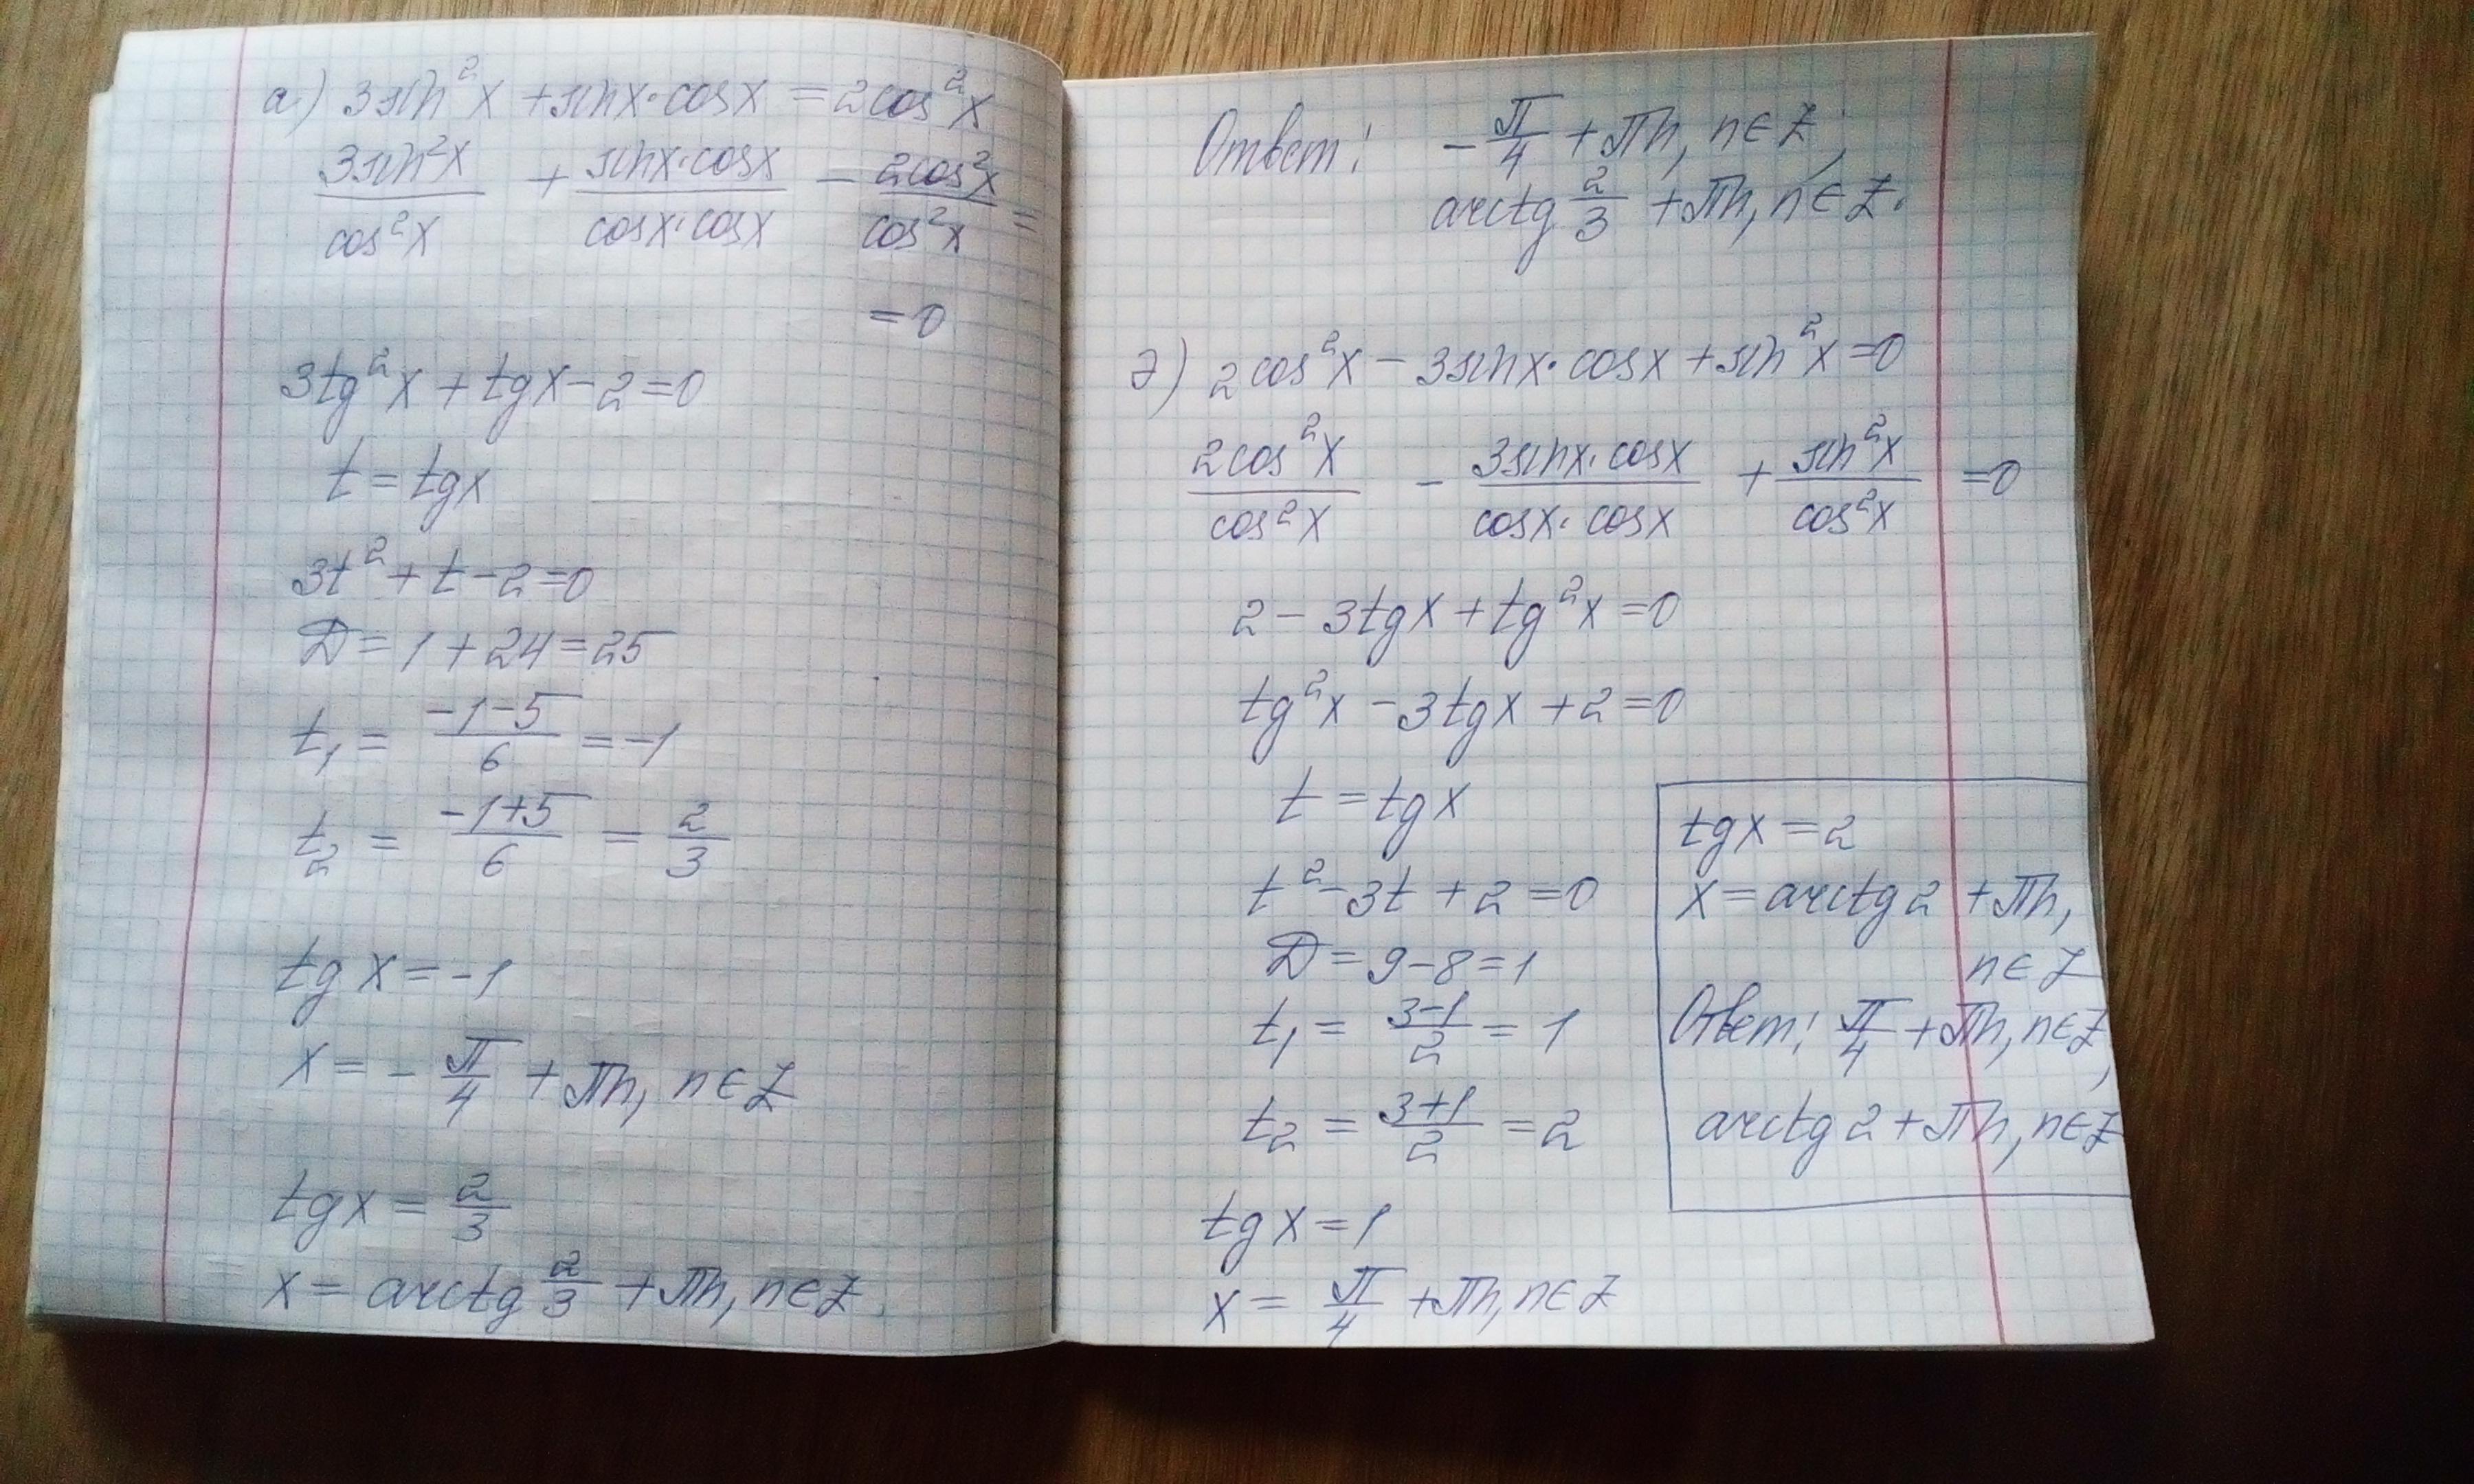 а) 3sin²x + sinx·cosx = 2cos²x
3sin²x/cos²x + sinx·cosx/cosx·cosx - 2cos²x/cos²x =
= 0
3tg²x + tgx - 2 = 0
t = tgx
3t² + t - 2 = 0
D = 1 + 24 = 25
t₁ = -1-5/6 = -1
t₂ = -1+5/6 = 2/3
tgx = -1
x = - π/4 + πn, n∈Z
tgx = 2/3
x = arctg 2/3 + πn, n∈Z.
Ответ: - π/4 + πn, n∈Z;
arctg 2/3 + πn, n∈Z.
д) 2cos²x - 3sinx·cosx + sin²x = 0
2cos²x/cos²x - 3sinx·cosx/cosx·cosx + sin²x/cos²x = 0
2 - 3tgx + tg²x = 0
tg²x - 3tgx + 2 = 0
t = tgx
t² - 3t + 2 = 0
D = 9 - 8 = 1
t₁ = 3-1/2 = 1
t₂ = 3+1/2 = 2
tgx = 1
x = π/4 + πn, n∈Z
tgx = 2
x = arctg2 + πn,
n∈Z
Ответ: π/4 + πn, n∈Z,
arctg2 + πn, n∈Z